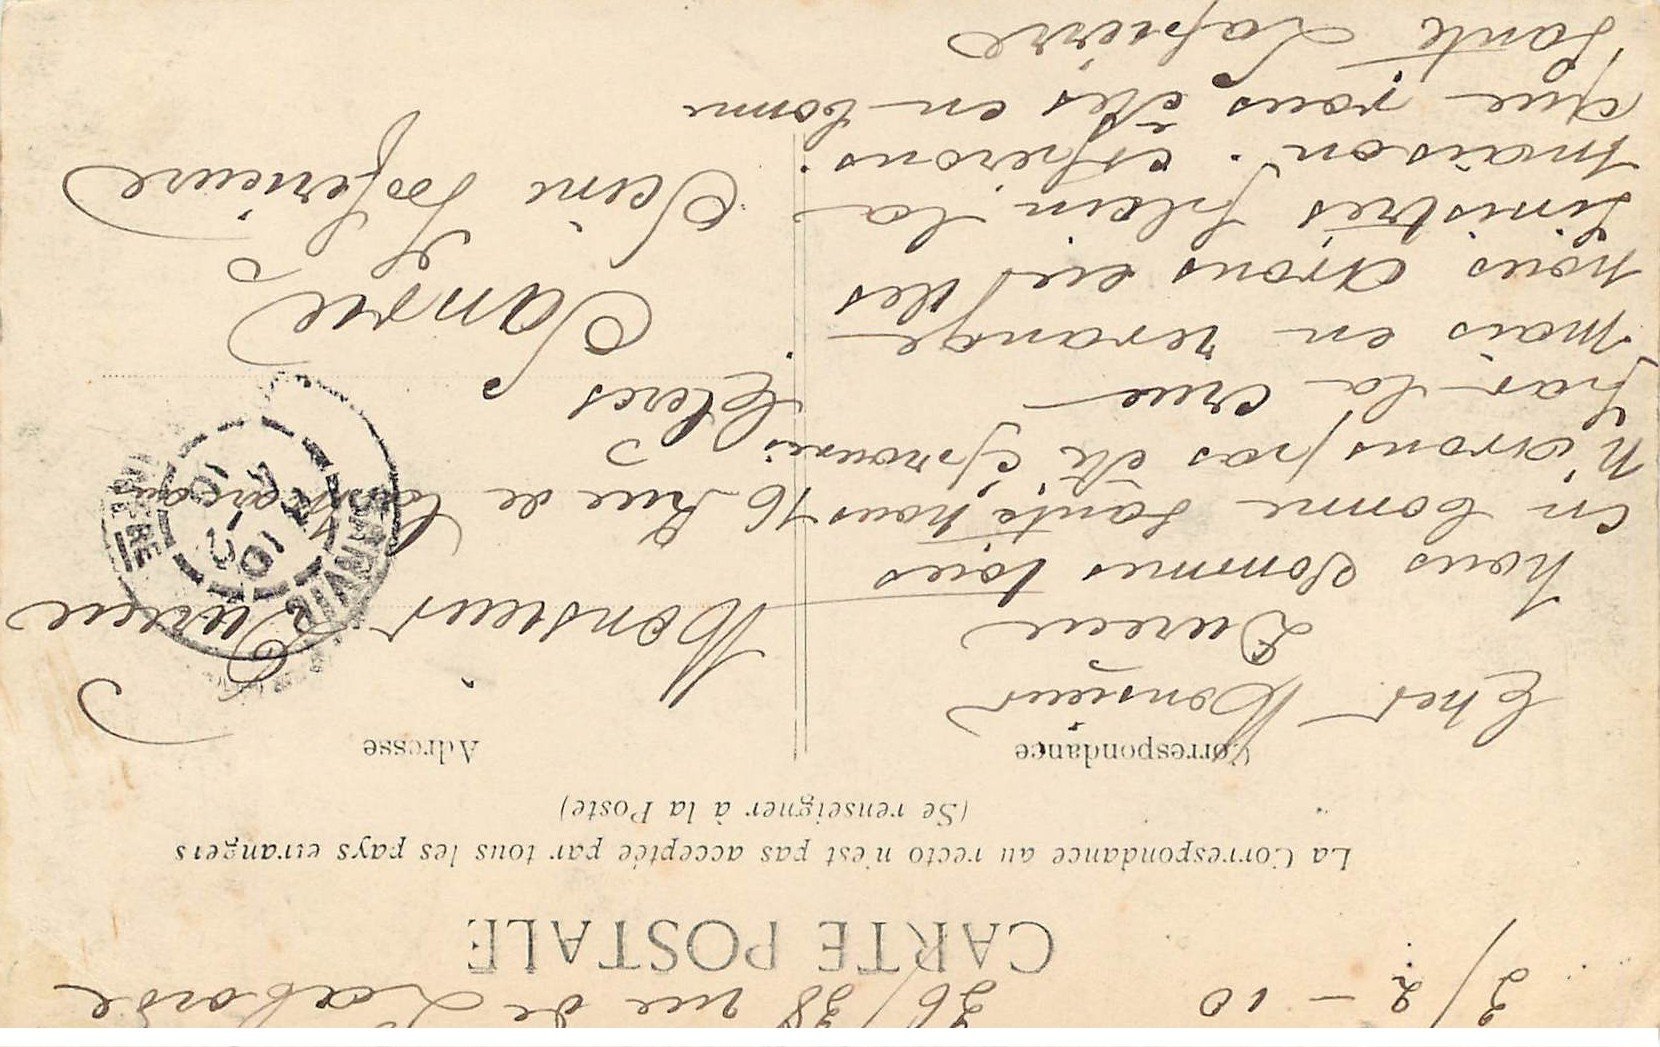 3/2-10
36/38 rue de Laborde
CARTE POSTALE
La Correspondance au recto n'est pas acceptée par tous les pays etrangers
(Se renseigner à la Poste)
Correspondance
Adresse
Cher Monsieur
Durecu
nous sommes tous
en bonne santé nous
n'avons pas été éprouvé
par la crue
mais en revange
nous avons eut des
sinistres plein la
maison. esperons
que vous êtes en bonne
santé Lapierre
Monsieur Durecu
16 Rue de la
Sanvic
Seine Inferieure
SANVIC
10